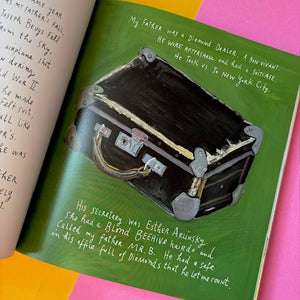 YEAR
MY FATHER'S FALL
Joseph Beuys fell
from the sky,
airplane shot
down during
World War II.
he made
Felt suit,
all like
'S
He was
MY FATHER WAS A DIAMOND DEALER & BON VIVANT.
HE WORE AFTERSHAVE and had a SUITCASE.
He TOOK US TO New York City.
His secretary was ESTHER ARLINSKY.
She had a BLOND BEEHIVE hairdo and
Called my father MR. B. He had a safe
in his office full of Diamonds that he let me count.